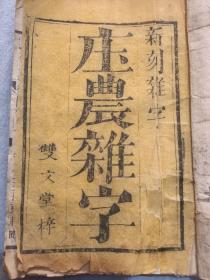 新刻雜字
庄農雜字
雙文堂梓